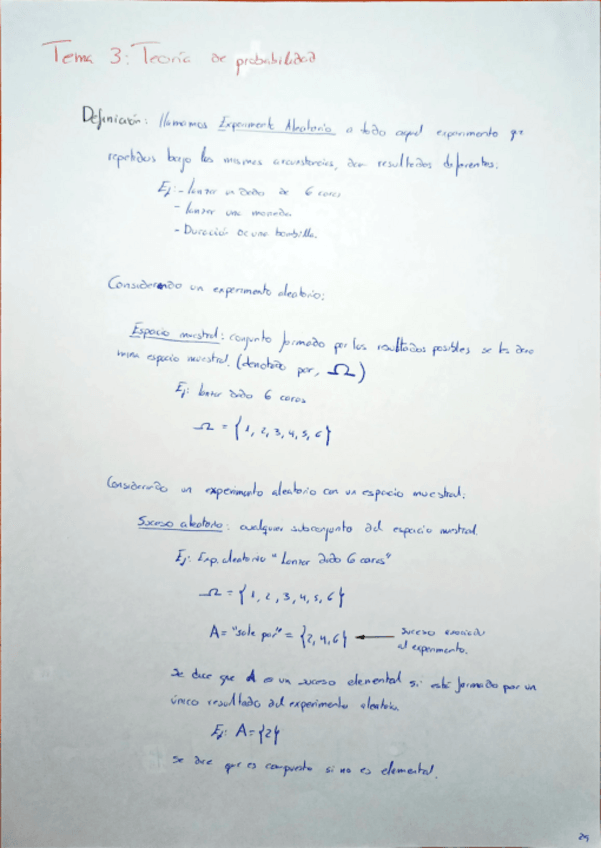 Tema 3: Teoría de probabilidad
Definición: llamamos Experimento Aleatorio a todo aquel experimento que
repetidos bajo las mismas circunstancias, dan resultados diferentes:
Ej: - lanzar un dado de 6 caras
- lanzar una moneda
- Duración de una bombilla.
Considerando un experimento aleatorio:
Espacio muestral: conjunto formado por los resultados posibles se les deno
mina espacio muestral. (denotado por, Ω)
Ej: lanzar dado 6 caras
Ω = {1, 2, 3, 4, 5, 6}
Considerando un experimento aleatorio con un espacio muestral:
Suceso aleatorio: cualquier subconjunto del espacio muestral.
Ej: Exp. aleatorio "Lanzar dado 6 caras"
Ω = {1, 2, 3, 4, 5, 6}
A = "sale par" = {2, 4, 6} ← suceso asociado
al experimento.
Se dice que A es un suceso elemental si está formado por un
único resultado del experimento aleatorio
Ej: A = {2}
Se dice que es compuesto si no es elemental.